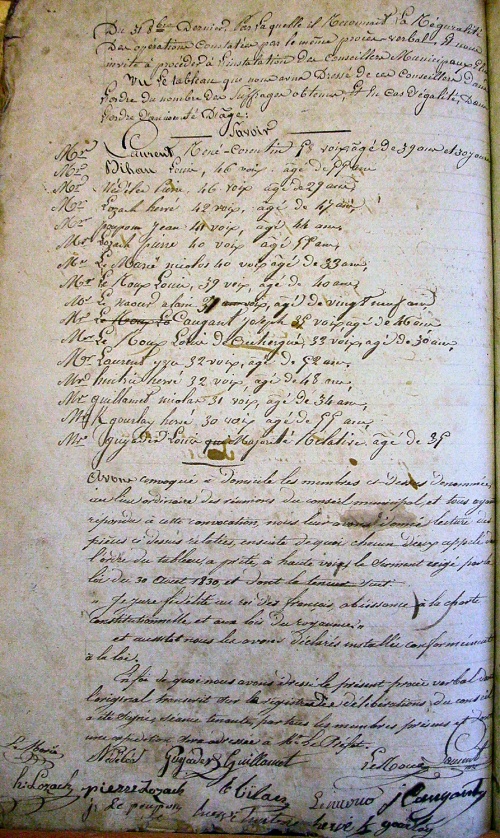 Du 31 8bre Dernier, par laquelle il Reconnait la Régularité
Des opérations Constatées par le même procès verbal, et nous
invite à procéder à l'installation des Conseillers Municipaux
Vu le tableau que nous avons Dressé de ces Conseillers dans
l'ordre du nombre des Suffrages obtenus, Et En cas d'égalité, Dans
l'ordre d'ancienneté D'âge:
Savoir
Mrs Laurent René-Corentin voix agé de 39 ans et
Mr Bihan Louis, 46 voix agé de ans
Mr Nédélec pierre, 46 voix, agé de 29 ans,
Mr Lozach hervé 42 voix, agé de 47 ans,
Mr poupon jean 41 voix, agé 44 ans,
Mr Lozach pierre 40 voix agé ans,
Mr Le Maré nicolas 40 voix agé de 33 ans,
Mr le Roux Louis, 39 voix, agé de 40 ans,
Mr Le naour alain voix, agé de vingt neuf ans,
Mr Le Roux Lo Caugant joseph 35 voix agé de 46 ans
Mr Le Roux Louis de 33 voix, agé de 30 ans,
Mr Laurent 32 voix, agé de 52 ans,
Mr hervé 32 voix, agé de 48 ans,
Mr guillamet nicolas 31 voix, agé de 34 ans,
Mr gourlay hervé 30 voix agé de ans,
Mr guyader Louis Majorité Relative, agé de 35
Avons convoqué à domicile les membres ci-dessus dénommés
au lieu ordinaire des réunions du conseil municipal, et tous ayant
répondu à cette convocation, nous leur avons donné lecture des
pièces ci dessus relatées, ensuite de quoi chacun d'eux appelé dans
l'ordre du tableau a prêté, à haute voix le serment exigé par la
loi du 30 août 1830, et dont la teneur suit
"Je jure fidélité au roi des français, obéissance à la charte
Constitutionnelle et aux lois du royaume"
et aussitôt nous les avons Déclarés installés conformément
à la loi.
En foi de quoi nous avons dressé le présent procès verbal dont
l'original transcrit sur le registre des délibérations du conseil
a été signé séance tenante, par tous les membres présens et dont
une expédition sera adressée à Mr Le Préfet.
Le Maré Nédélec Guyader Guillamet Le Roux Laurent
h: Lozach pierre Lozach Le naour J Caugant
j: Le poupon hervé le gourlay